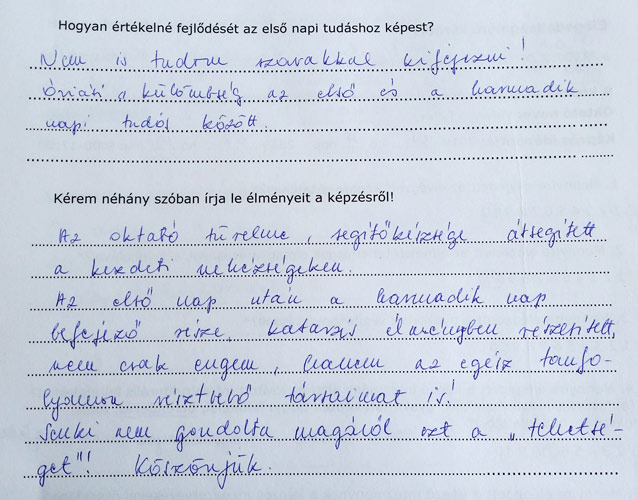 Hogyan értékelné fejlődését az első napi tudáshoz képest?
Nem is tudom szavakkal kifejezni!
Óriási a külömbség az első és a harmadik
napi tudás között.
Kérem néhány szóban írja le élményeit a képzésről!
Az oktató türelme, segítőkészsége átsegített
a kezdeti nehézségeken.
Az első nap után a harmadik nap
befejező része, katarzis élményben részesített,
nem csak engem, hanem az egész tanfo-
lyamon résztvevő társaimat is!
Senki nem gondolta magáról ezt a „tehetsé-
get"! Köszönjük.